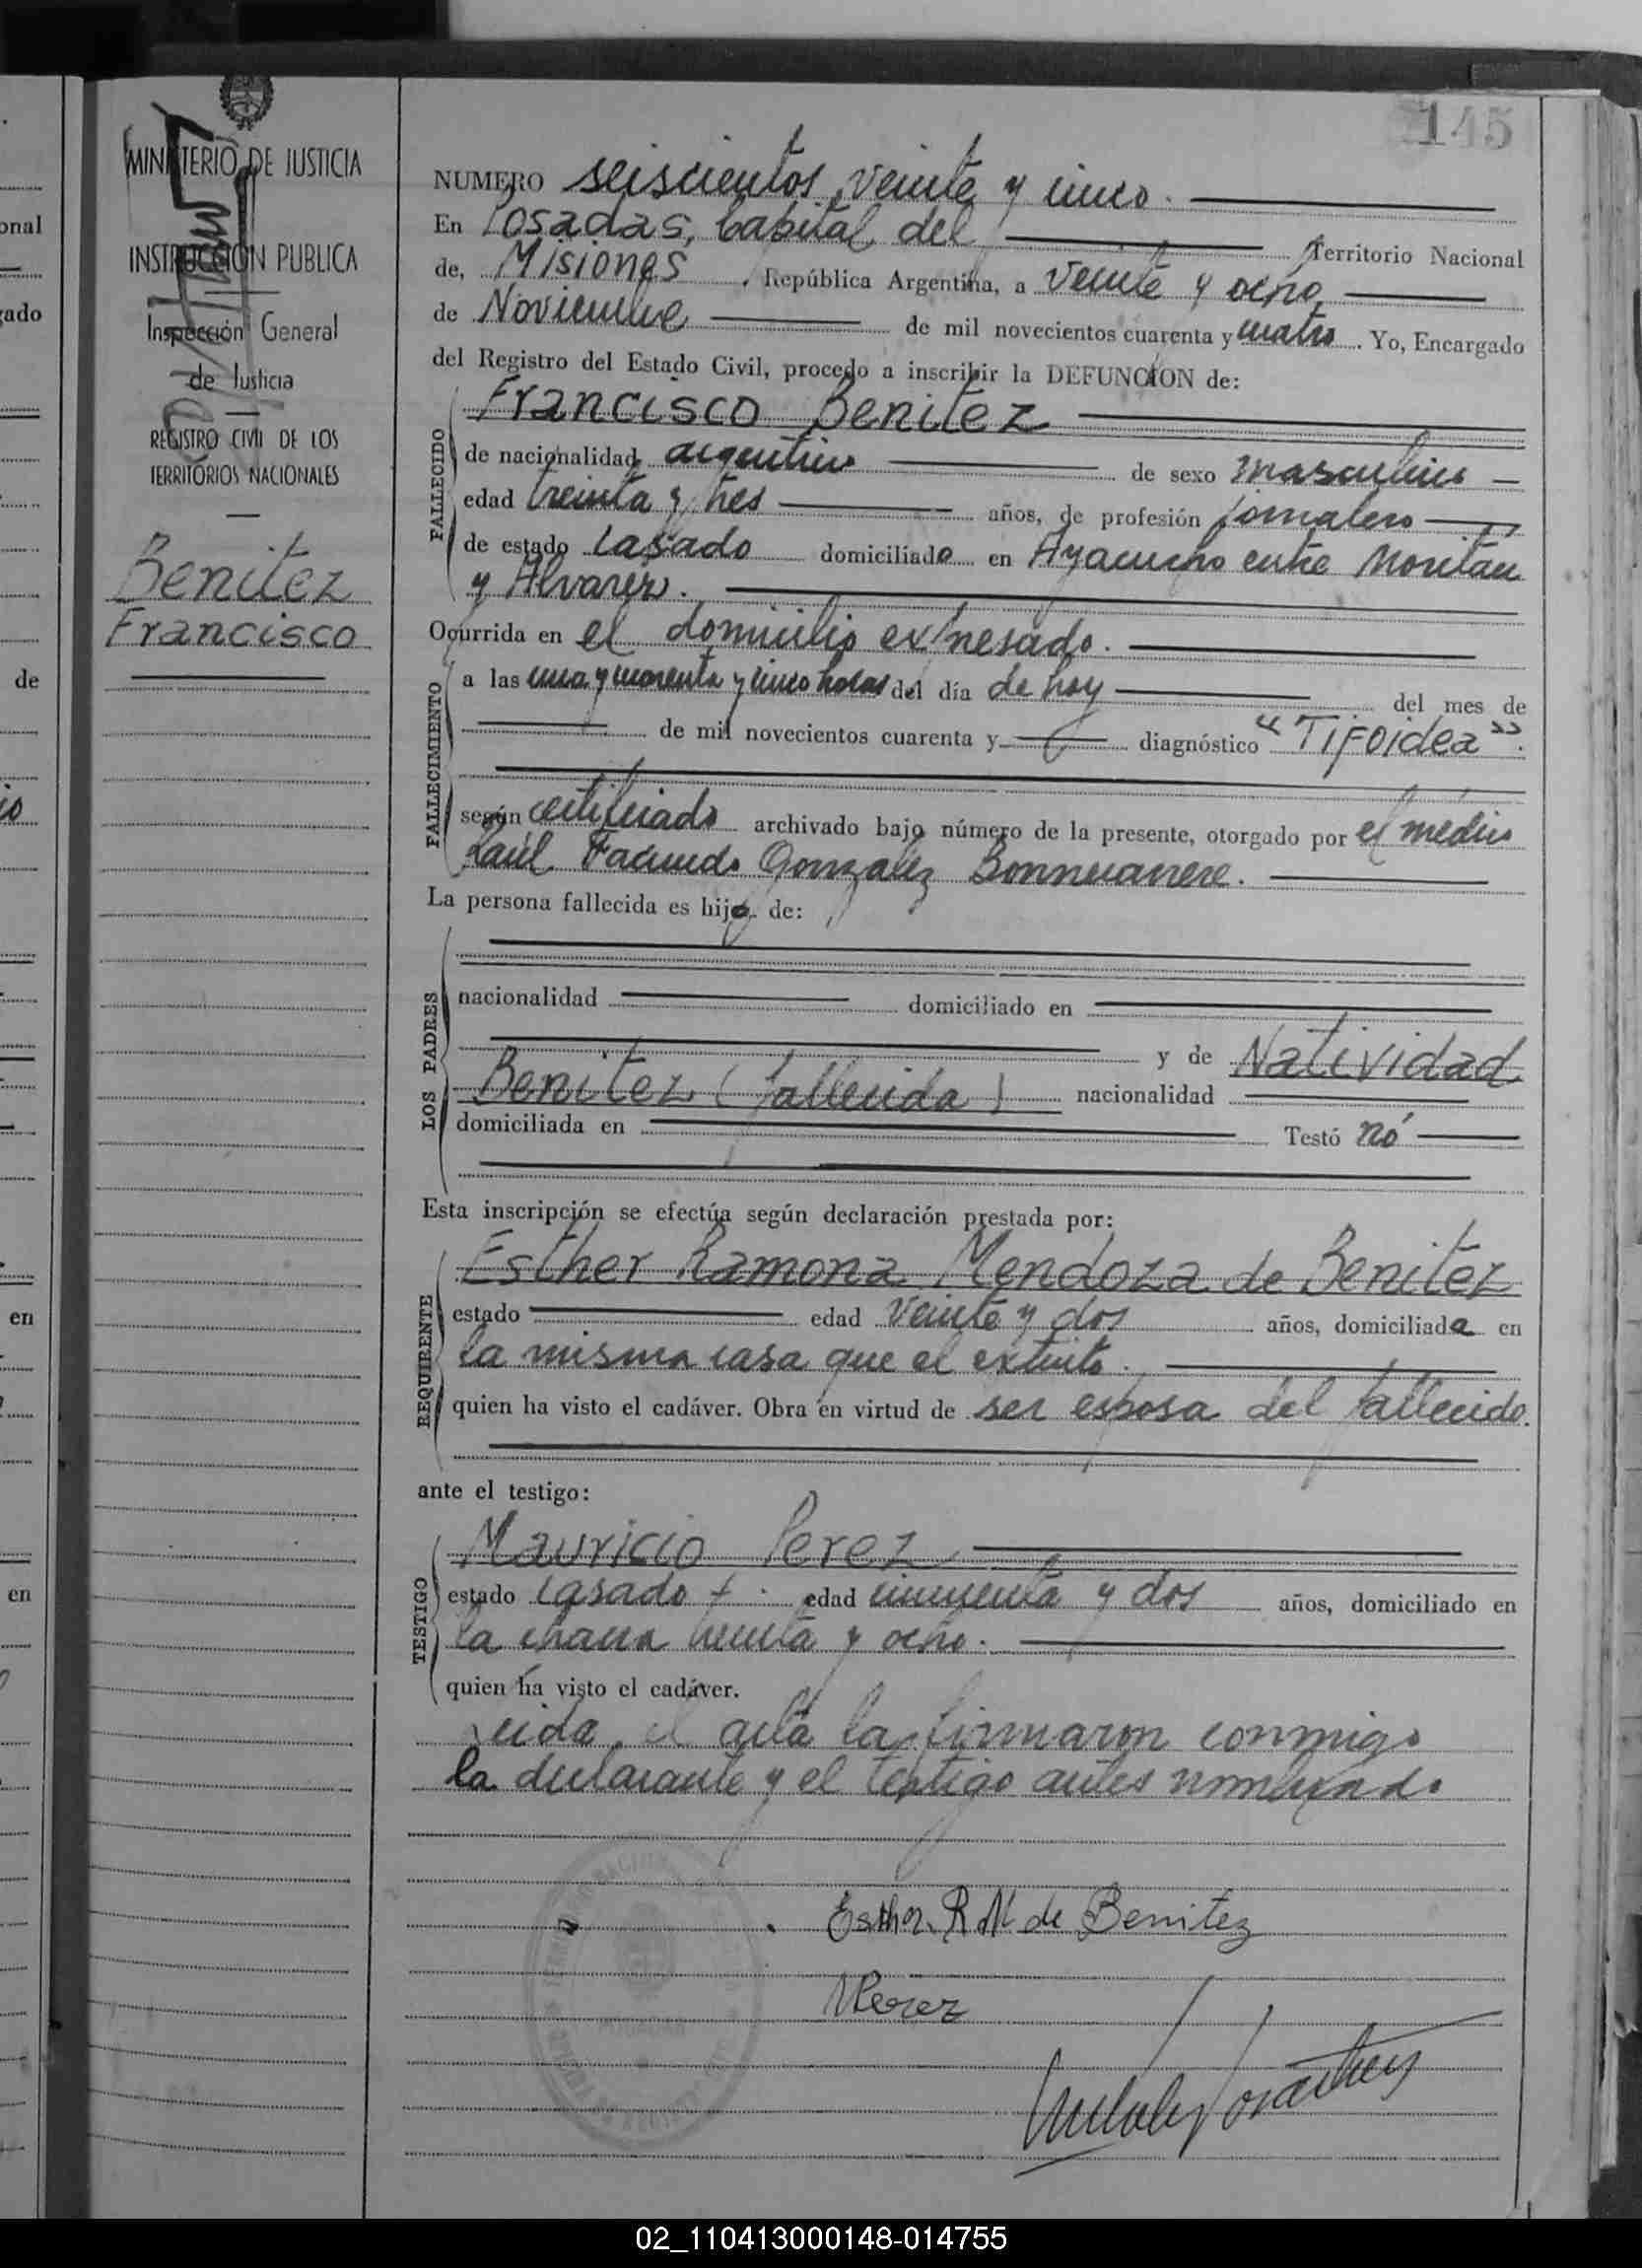 145
MINISTERIO DE JUSTICIA
INSTRUCCION PUBLICA
Inspección General
de Justicia
REGISTRO CIVIL DE LOS
TERRITORIOS NACIONALES
Benitez
Francisco
NUMERO seiscientos veinte y cinco.
En Posadas, Capital del Territorio Nacional
de, Misiones, República Argentina, a veinte y ocho
de Noviembre de mil novecientos cuarenta y cuatro. Yo, Encargado
del Registro del Estado Civil, procedo a inscribir la DEFUNCION de:
FALLECIDO
Francisco Benitez
de nacionalidad argentino de sexo masculino
edad treinta y tres años, de profesión jornalero
de estado casado domiciliado en Ayacucho entre
y Alvarez.
Ocurrida en el domicilio expresado.
FALLECIMIENTO
a las una y cuarenta y cinco horas del día de hoy del mes de
de mil novecientos cuarenta y diagnóstico "Tifoidea".
según certificado archivado bajo número de la presente, otorgado por el médico
Raúl Facundo Gonzalez
La persona fallecida es hijo de:
LOS PADRES
nacionalidad domiciliado en
y de Natividad
Benitez (fallecida) nacionalidad
domiciliada en Testó nó
Esta inscripción se efectúa según declaración prestada por:
REQUIRENTE
Esther Ramona Mendoza de Benitez
estado edad veinte y dos años, domiciliada en
la misma casa que el extinto.
quien ha visto el cadáver. Obra en virtud de ser esposa del fallecido.
ante el testigo:
TESTIGO
Mauricio Perez
estado casado edad cincuenta y dos años, domiciliado en
la chacra treinta y ocho.
quien ha visto el cadáver.
Leida el acta la firmaron conmigo
la declarante y el testigo antes nombrado
Esther R M de Benitez
MPerez
02_110413000148-014755